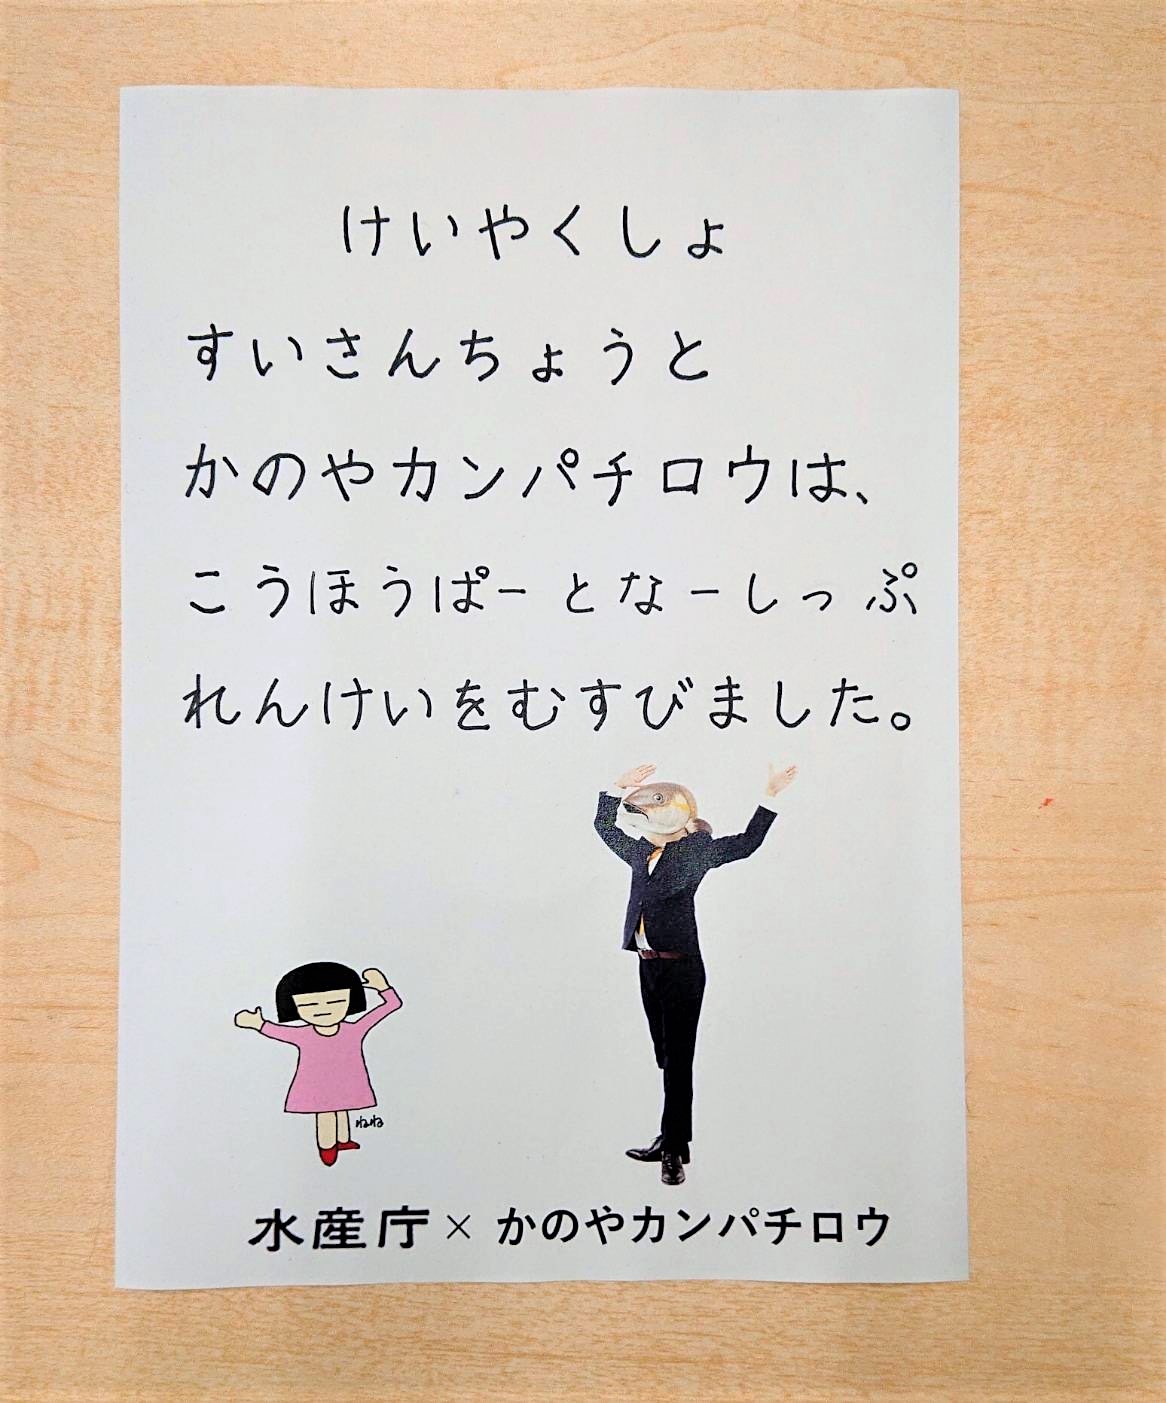 けいやくしょ
すいさんちょうと
かのやカンパチロウは、
こうほうぱーとなーしっぷ
れんけいをむすびました。
ねね
水産庁×かのやカンパチロウ